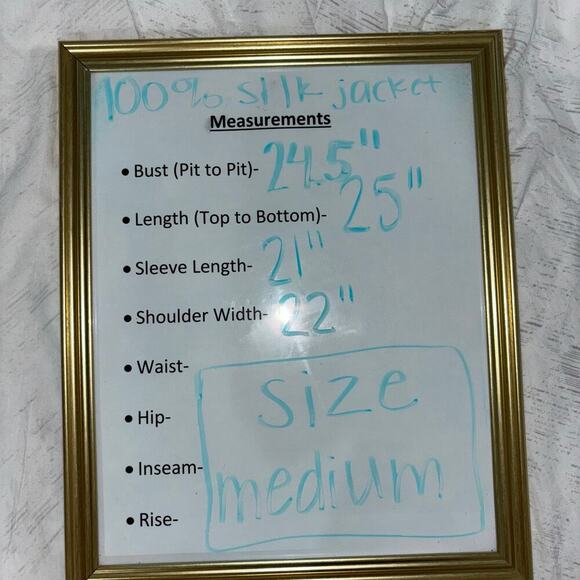 100% silk jacket
Measurements
• Bust (Pit to Pit)- 24.5"
• Length (Top to Bottom)- 25"
• Sleeve Length- 21"
• Shoulder Width- 22"
• Waist-
• Hip-
• Inseam-
• Rise-
size
medium